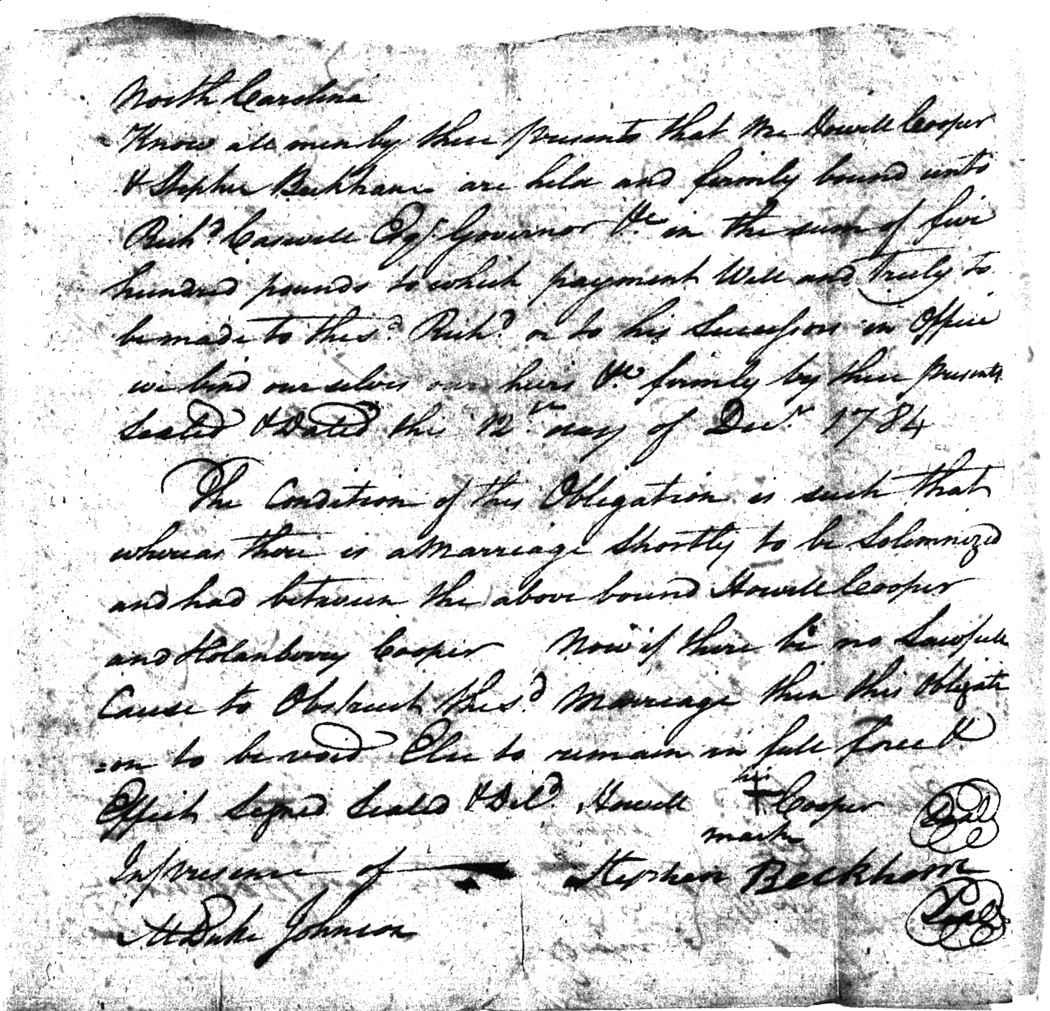 North Carolina
Know all men by these presents that We Howell Cooper
& Stephen Beckham are held and firmly bound unto
Richd Caswell Esqr Governor &c in the sum of five
hundred pounds to which payment Well and Truly to
be made to the sd Richd or to his Successors in Office
we bind ourselves our heirs &c firmly by these presents
Sealed & Dated this 12th day of Decr 1784
The Condition of this Obligation is such that
whereas there is a Marriage Shortly to be Solemnized
and had between the above bound Howell Cooper
and Holanberry Cooper Now if there be no Lawfull
Cause to Obstruct the sd Marriage then this Obligati
=on to be void Else to remain in full force &
Effect Signed Sealed & Deld Howell his + Cooper Seal
mark
In presence of Stephen Beckham
Seal
Duke Johnson